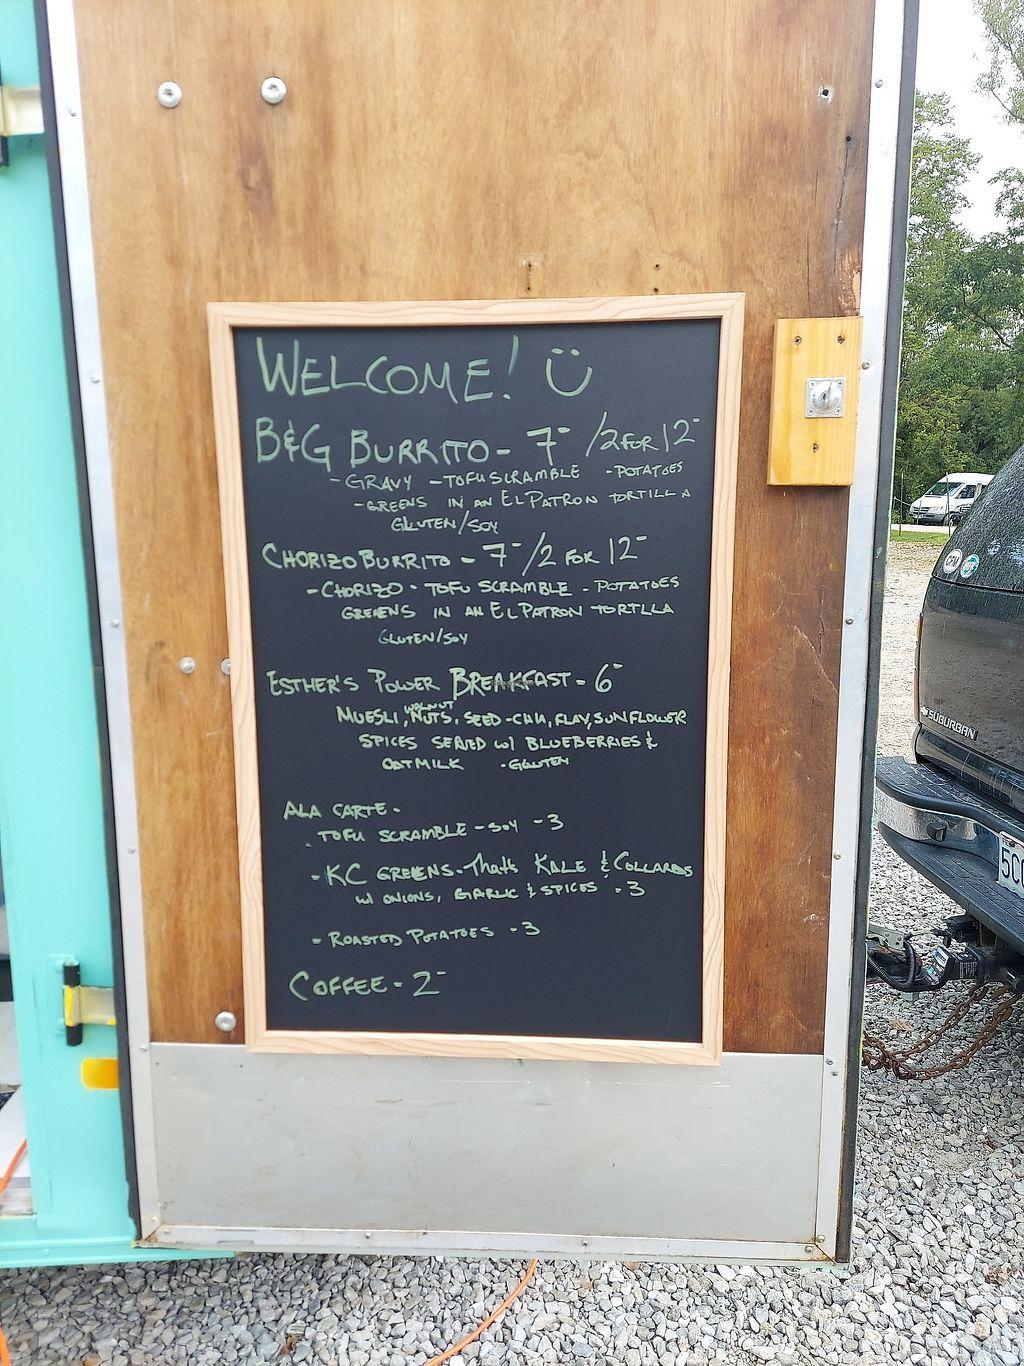 WELCOME!
B&G BURRITO - 7- / 2 FOR 12-
- GRAVY - TOFU SCRAMBLE - POTATOES
- GREENS IN AN EL PATRON TORTILLA
GLUTEN/SOY
CHORIZO BURRITO - 7- / 2 FOR 12-
- CHORIZO - TOFU SCRAMBLE - POTATOES
GREENS IN AN EL PATRON TORTILLA
GLUTEN/SOY
ESTHER'S POWER BREAKFAST - 6-
WALNUT
MUESLI, NUTS, SEED - CHIA, FLAX, SUNFLOWER
SPICES SERVED W/ BLUEBERRIES &
OATMILK - GLUTEN
ALA CARTE -
- TOFU SCRAMBLE - SOY - 3
- KC GREENS - That's KALE & COLLARDS
W/ ONIONS, GARLIC & SPICES - 3
- ROASTED POTATOES - 3
COFFEE - 2-
SUBURBAN